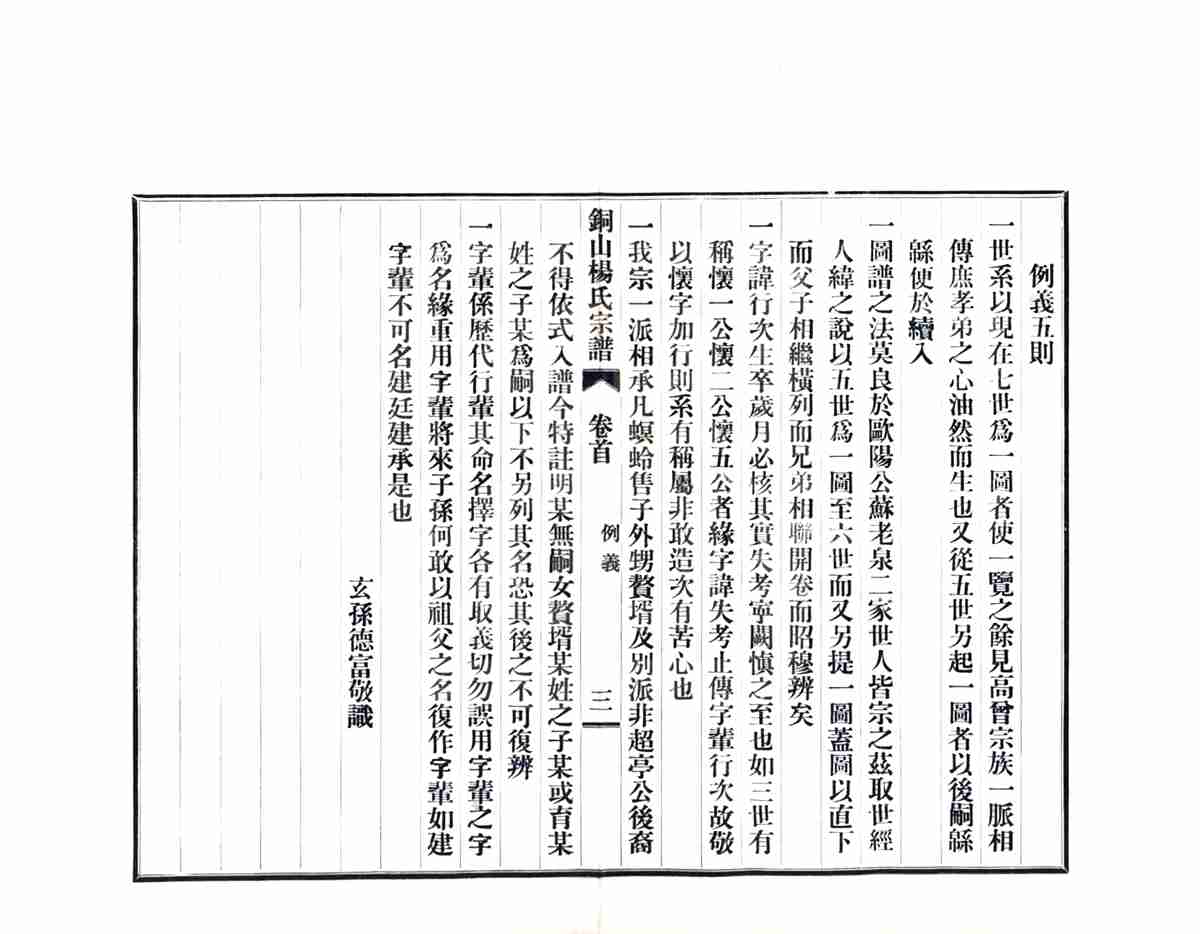 例義五則
一世系以現在七世爲一圖者使一覽之餘見高曾宗族一脈相
傳庶孝弟之心油然而生也又從五世另起一圖者以後嗣緜
緜便於續入
一圖譜之法莫良於歐陽公蘇老泉二家世人皆宗之茲取世經
人緯之說以五世爲一圖至六世而又另提一圖蓋圖以直下
而父子相繼橫列而兄弟相聯開卷而昭穆辨矣
一字諱行次生卒歲月必核其實失考寧闕愼之至也如三世有
稱懷一公懷二公懷五公者緣字諱失考止傳字輩行次故敬
以懷字加行則系有稱屬非敢造次有苦心也
一我宗一派相承凡螟蛉售子外甥贅壻及別派非超亭公後裔
銅山楊氏宗譜
卷首
例義
三
不得依式入譜今特註明某無嗣女贅壻某姓之子某或育某
姓之子某爲嗣以下不另列其名恐其後之不可復辨
一字輩係歷代行輩其命名擇字各有取義切勿誤用字輩之字
爲名緣重用字輩將來子孫何敢以祖父之名復作字輩如建
字輩不可名建廷建承是也
玄孫德富敬識